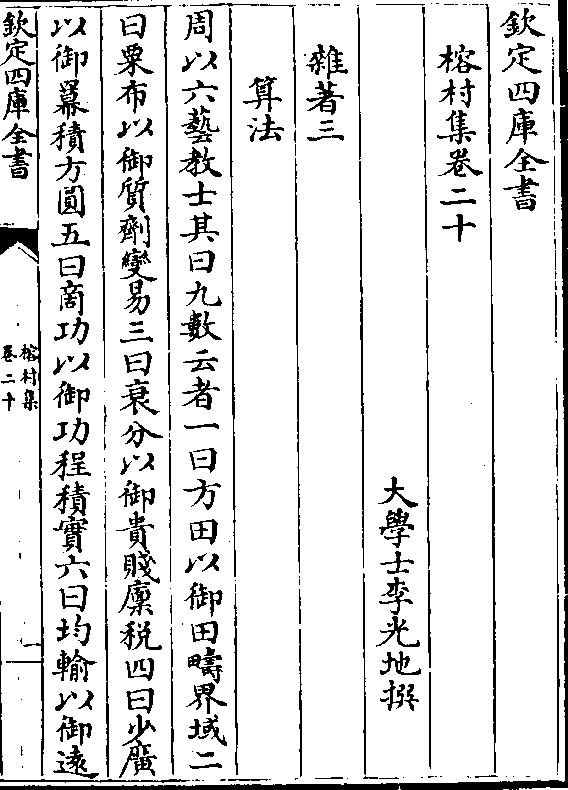 欽定四庫全書
榕村集卷二十
大學士李光地撰
雜著三
算法
周以六藝教士其曰九數云者一曰方田以御田疇界域二
曰粟布以御質劑變易三曰衰分以御貴賤廩税四曰少廣
以御羃積方圓五曰商功以御功程積實六曰均輸以御遠
欽定四庫全書
榕村集
卷二十
一